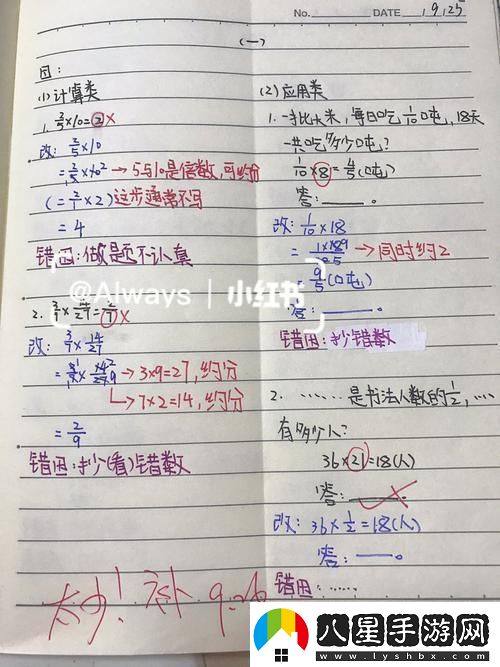 No.
DATE 9.25
(一)
因:
(1) 计算类
1. 2/5×10=2×
改: 2/5×10
=2/5×10² → 5与10是倍数,可约分
(=2/1×2)这步通常不写
=4
错因:做题不认真
2. 3/7×14/27=7×
改: 3/7×14/27
→ 3×9=27,约分
→ 7×2=14,约分
=2/9
错因:抄(看)错数
(2) 应用类
1. 一批大米,每日吃1/10吨,18天
一共吃多少吨?
1/10×8=4/5(吨)
答:
改: 1/10×18
→ 同时约2
9/5(吨)
答:
错因:抄错数
2. ……是书法人数的1/2,…
有多少人?
36×21=18(人)
答:
改: 36×1/2=18(人)
答:
错因:……
太少!补 9.26
@Always | 小红书
八星手游网
www.lyshbx.com